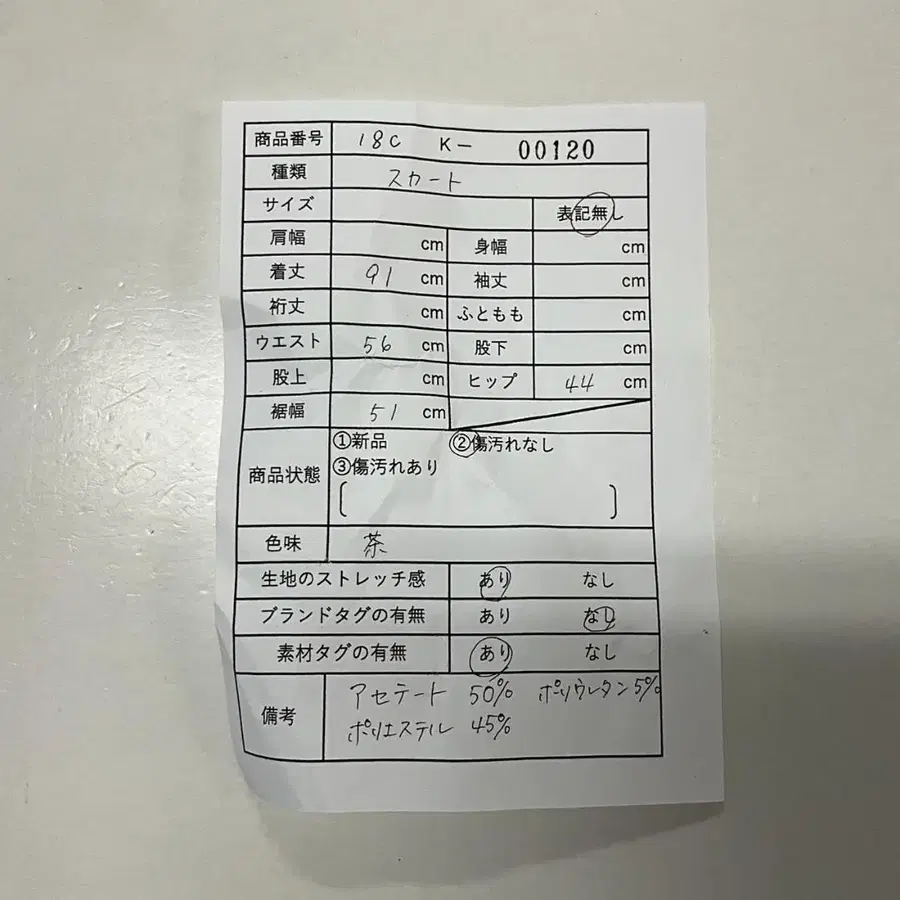 商品番号 18C K- 00120
種類 スカート
サイズ 表記無し
肩幅 cm 身幅 cm
着丈 91 cm 袖丈 cm
裄丈 cm ふともも cm
ウエスト 56 cm 股下 cm
股上 cm ヒップ 44 cm
裾幅 51 cm
商品状態 ①新品 ②傷汚れなし
③傷汚れあり
色味 茶
生地のストレッチ感 あり なし
ブランドタグの有無 あり なし
素材タグの有無 あり なし
備考 アセテート 50% ポリウレタン5%
ポリエステル 45%